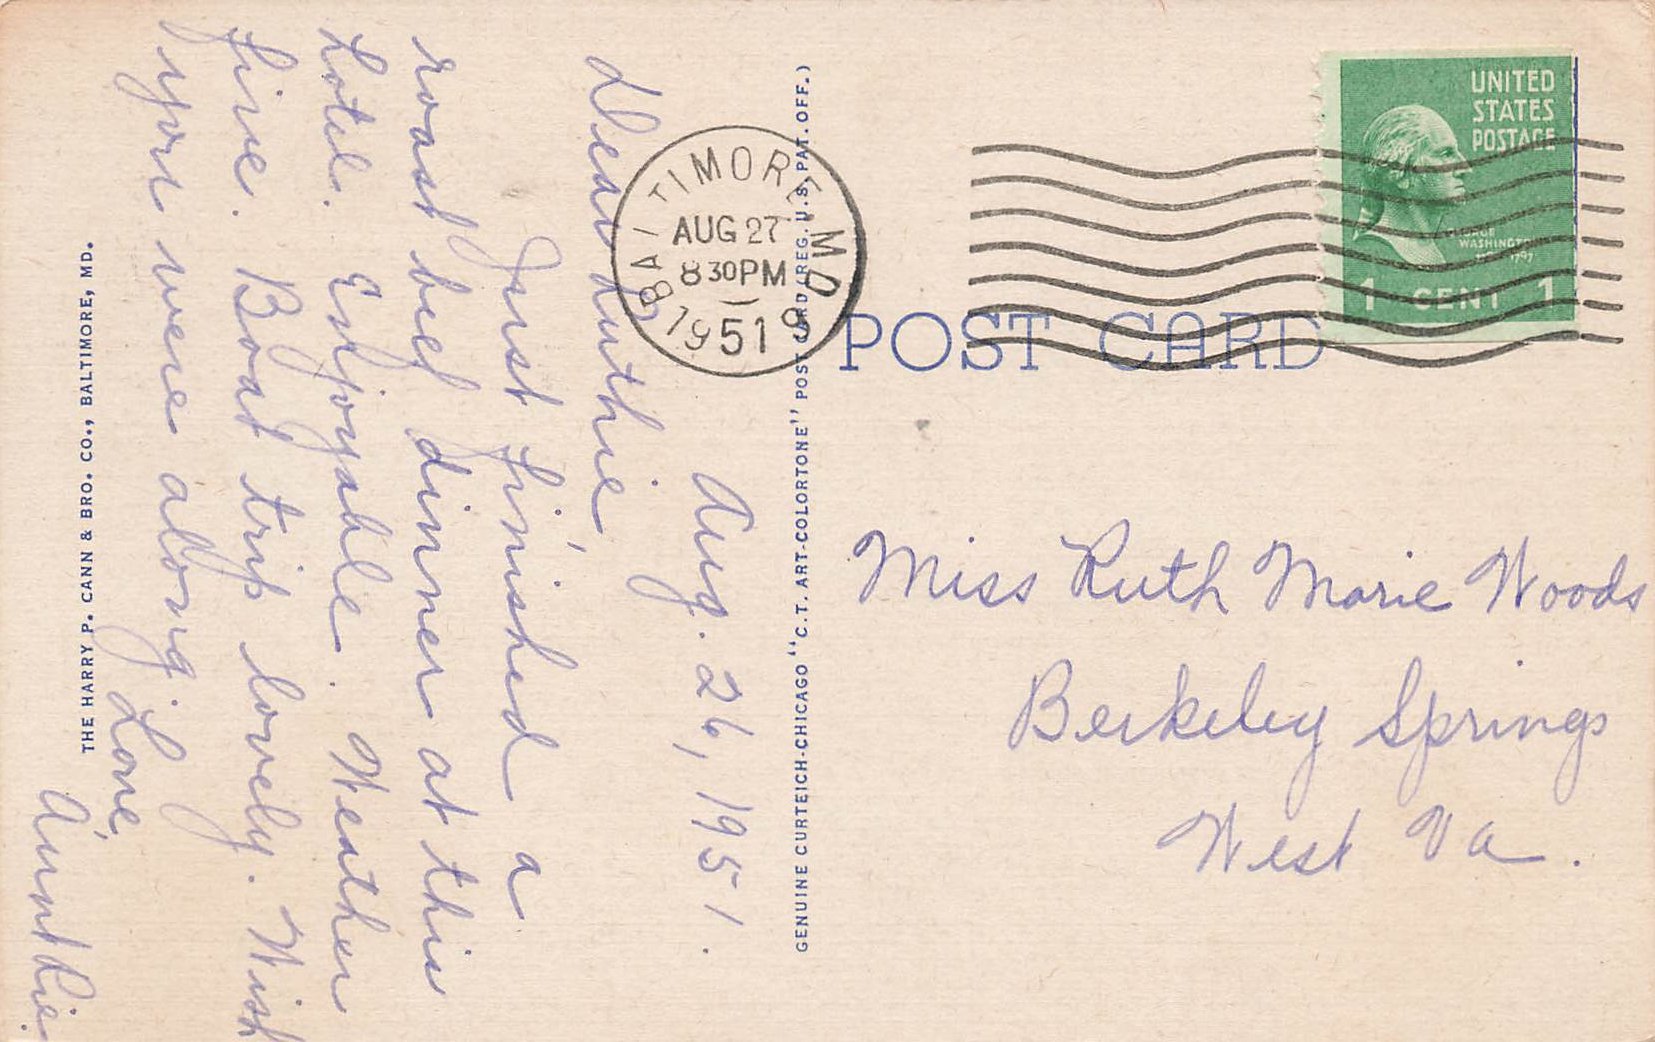 Aug. 26, 1951.
Dear Ruthie,
Just finished a
roast beef dinner at this
Hotel. Enjoyable. Weather
fine. Boat trip lovely. Wish
you were along.
Love,
Aunt Rie.
THE HARRY P. CANN & BRO. CO., BALTIMORE, MD.
GENUINE CURTEICH-CHICAGO "C.T. ART-COLORTONE" POST CARD (REG. U.S. PAT. OFF.)
BALTIMORE, MD.
AUG 27
8 30 PM
1951
POST CARD
UNITED
STATES
POSTAGE
GEORGE
WASHINGTON
1 CENT 1
Miss Ruth Marie Woods
Berkeley Springs
West Va.